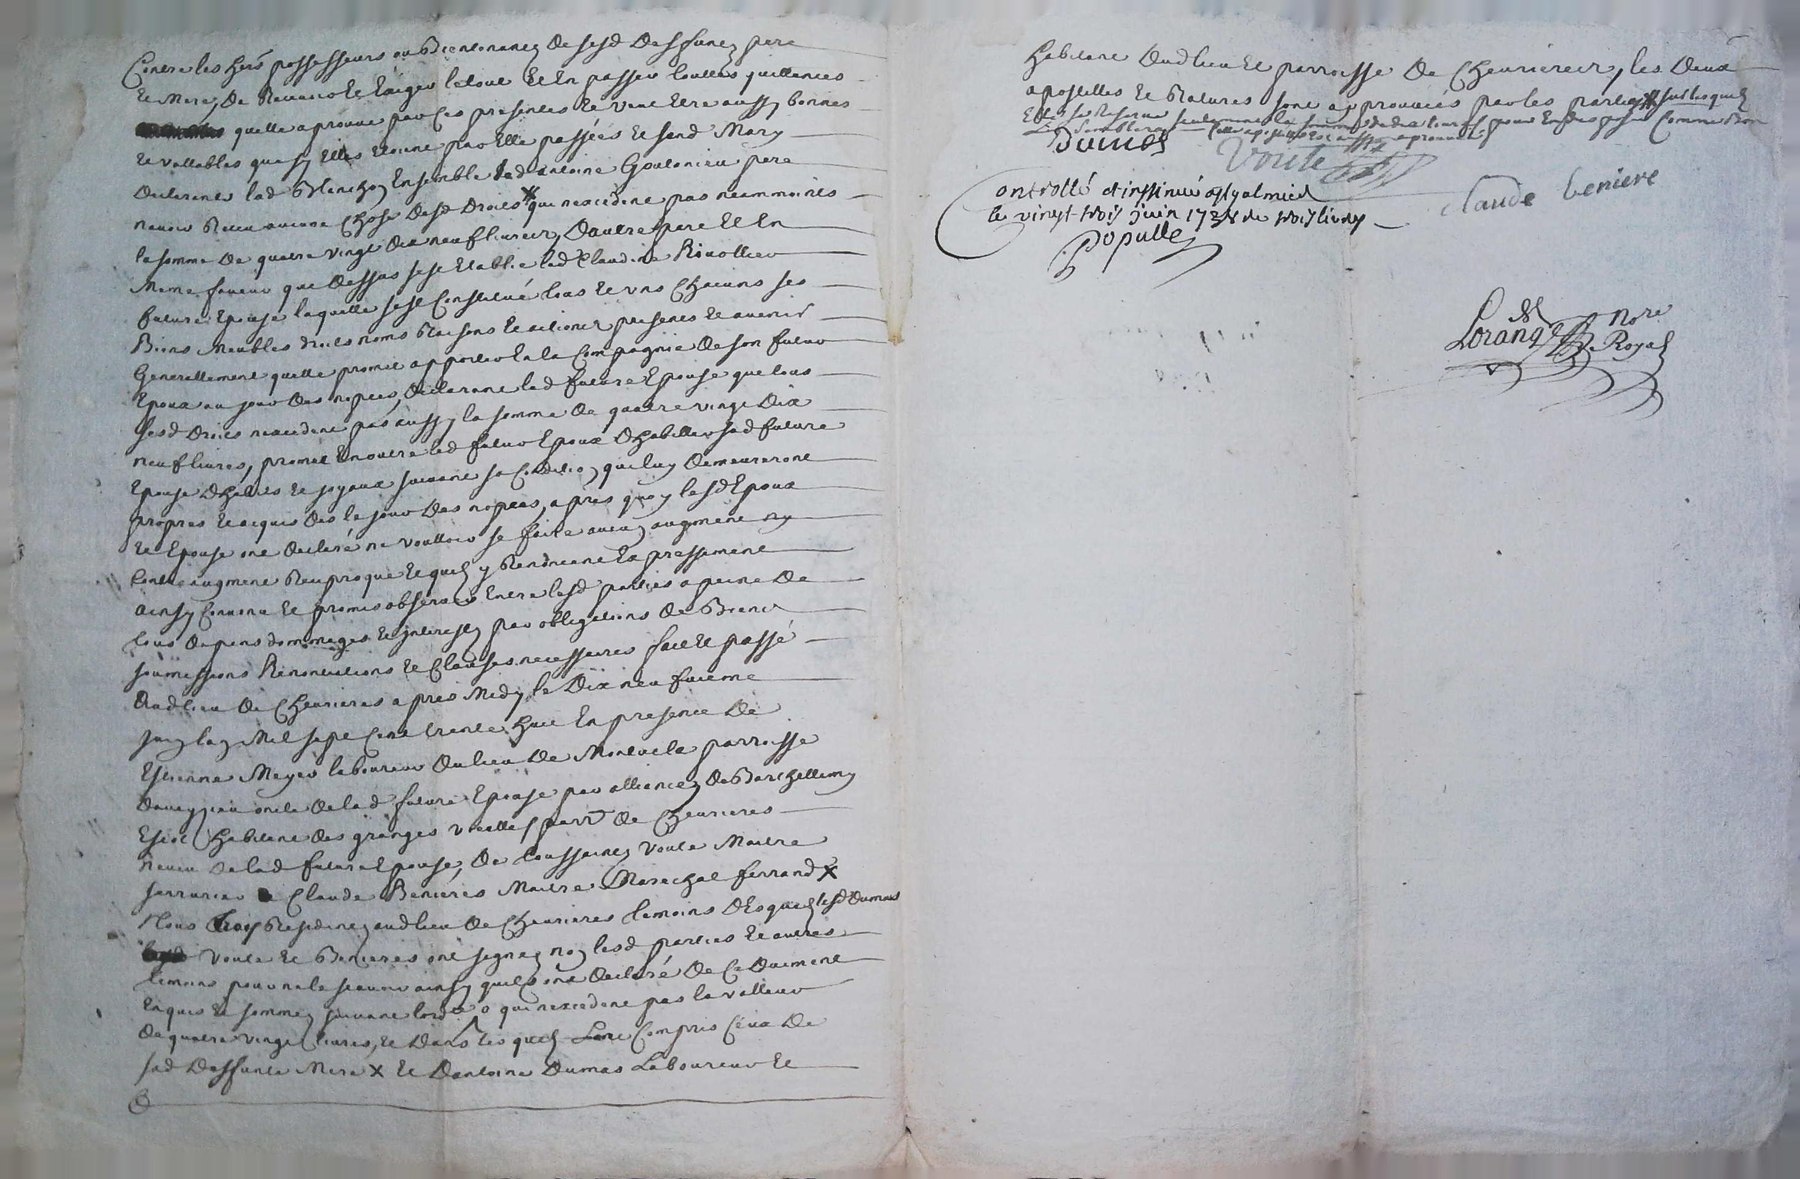 Contre les hers possesseurs ou Bientenans de sesd deffuncts pere
et Mere, De Recevoir et Exiger letout Et En passer touttes quittances
quelle aprouve par Ces presentes et veut Etre aussy bonnes
et vallables que sy Elles Etoint par Elle passées et sond Mary
Declarent lad Blanchon Ensemble led antoine Goutonieu pere
navoir Receu aucune Chose Desd Droits que nexcedent pas neammoins
la somme De quatre vingt Dix neuf livres, Dautre part Et En
Meme faveur que Dessus sest Etablie lad Claudine Rivollier
future Epouse laquelle sest Constitué tous Et uns Chacuns ses
Biens Meubles droits noms Raisons Et actions presents Et avenir
Generallement quelle promet apporter En la Compagnie De son futur
Epoux au jour Des nopces, Declarant lad future Epouse que tous
sesd Droits nexcedent pas aussy la somme De quatre vingt Dix
neuf livres, promet En outre led futur Epoux Dhabiller sad future
Epouse Dhabits Et joyaux suivant sa Condition, que luy Demeureront
propres Et acquis Des le jour Des nopces, apres quoy lesd Epoux
et Epouse ont declaré ne voulloir se faire aucun augment ny
Contre augment Reciproque Et quils y Renoncent Expressement
ainsy Convenu Et promis observer Entre lesd parties a peine De
tous Depens dommages Et interests par obligations De Biens
soumissions Renonciations Et Clauses necessaires fait Et passé
Aud lieu De Chevrieres apres Midy le Dix neufvieme
juin lan Mil sept Cent trente huit En presence De
Estienne Meyer laboureur Du lieu De parroisse
Daveyzieu oncle De lad future Epouse par alliance, De Barthellemy
habitant Des granges parr De Chevrieres
neveu De lad future Epouse, De toussaint voute Maitre
serrurier Claude Benieres Maitre Marechal ferrand X
tous trois Residents aud lieu De Chevrieres temoins Desquels lesd Dumas
voute Et Benieres ont signez non lesd parties Et autres
temoins pour ne le scavoir ainsy quils ont Declaré De Ce Duement
Enquis Et sommez suivant lord o qui nexcedent pas la valleur
De quatre vingt livres, Et Dans les quels sont Compris Ceux De
sad Deffunte Mere X Et Dantoine Dumas Laboureur Et
habitant Dud lieu Et parroisse De Chevrieres, les Deux
apostilles Et Ratures sont approuvées par les parties sur lesquels
Elle se Reserve seullement la somme de dix livres pour En disposer Comme Bon
luy semblera
Dumas
Voute
Claude beniere
Controllé et insinué a St galmier
le vingt trois juin 1738 Rx trois livres
Populle
Lorange Nore Royal